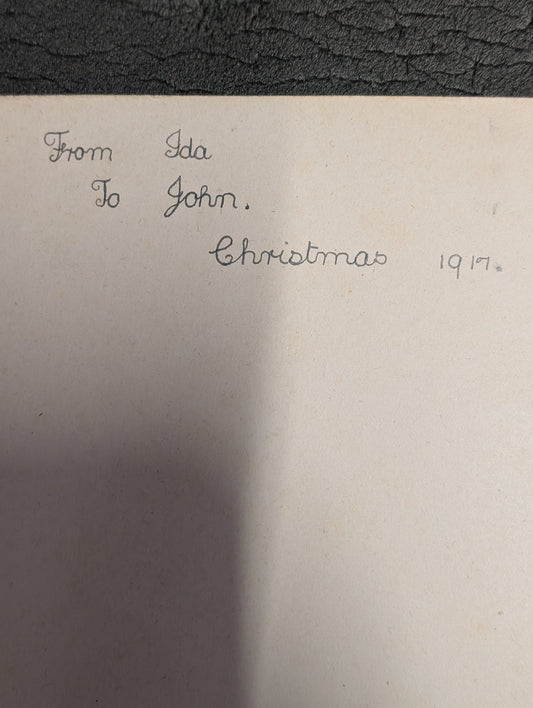 From Ida
To John.
Christmas 1917.